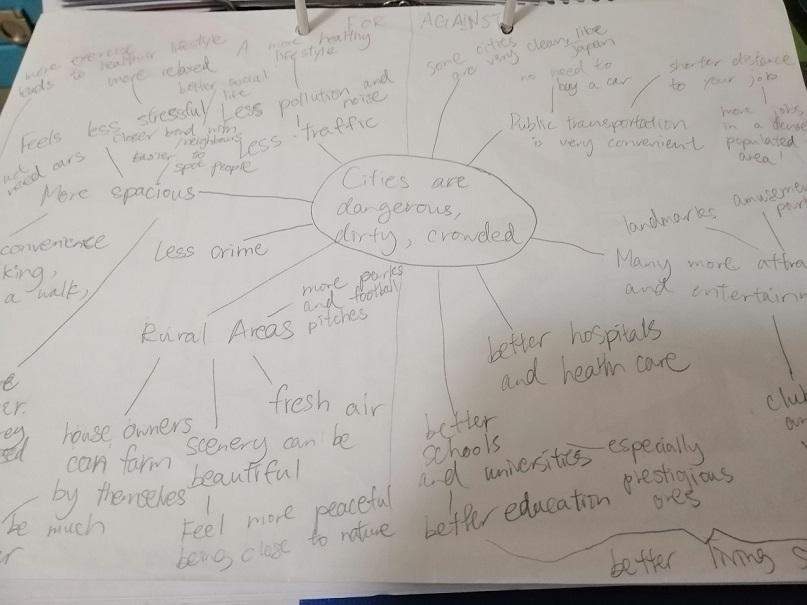 FOR
AGAINST
more exercise
leads to healthier lifestyle
more relaxed
A more healthy
lifestyle
better social
life
Feels less stressful
closer bond with
neighbours
easier to
spot people
Less pollution and
noise
Less traffic
need cars
More spacious
convenience
king,
a walk,
Less crime
Rural Areas
more parks
and football
pitches
fresh air
house owners
can farm
by themselves
be much
scenery can be
beautiful
Feel more peaceful
being close to nature
Cities are
dangerous,
dirty, crowded
some cities
are very clean, like
Japan
no need to
buy a car
shorter distance
to your job
Public transportation
is very convenient
more jobs
in a dense
populated
area!
landmarks
Many more
and
better hospitals
and health care
better
schools
and universities
especially
prestigious
ones
better education
better living